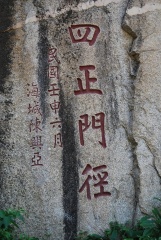 四正門徑
民國壬申六月
海城陳興亞